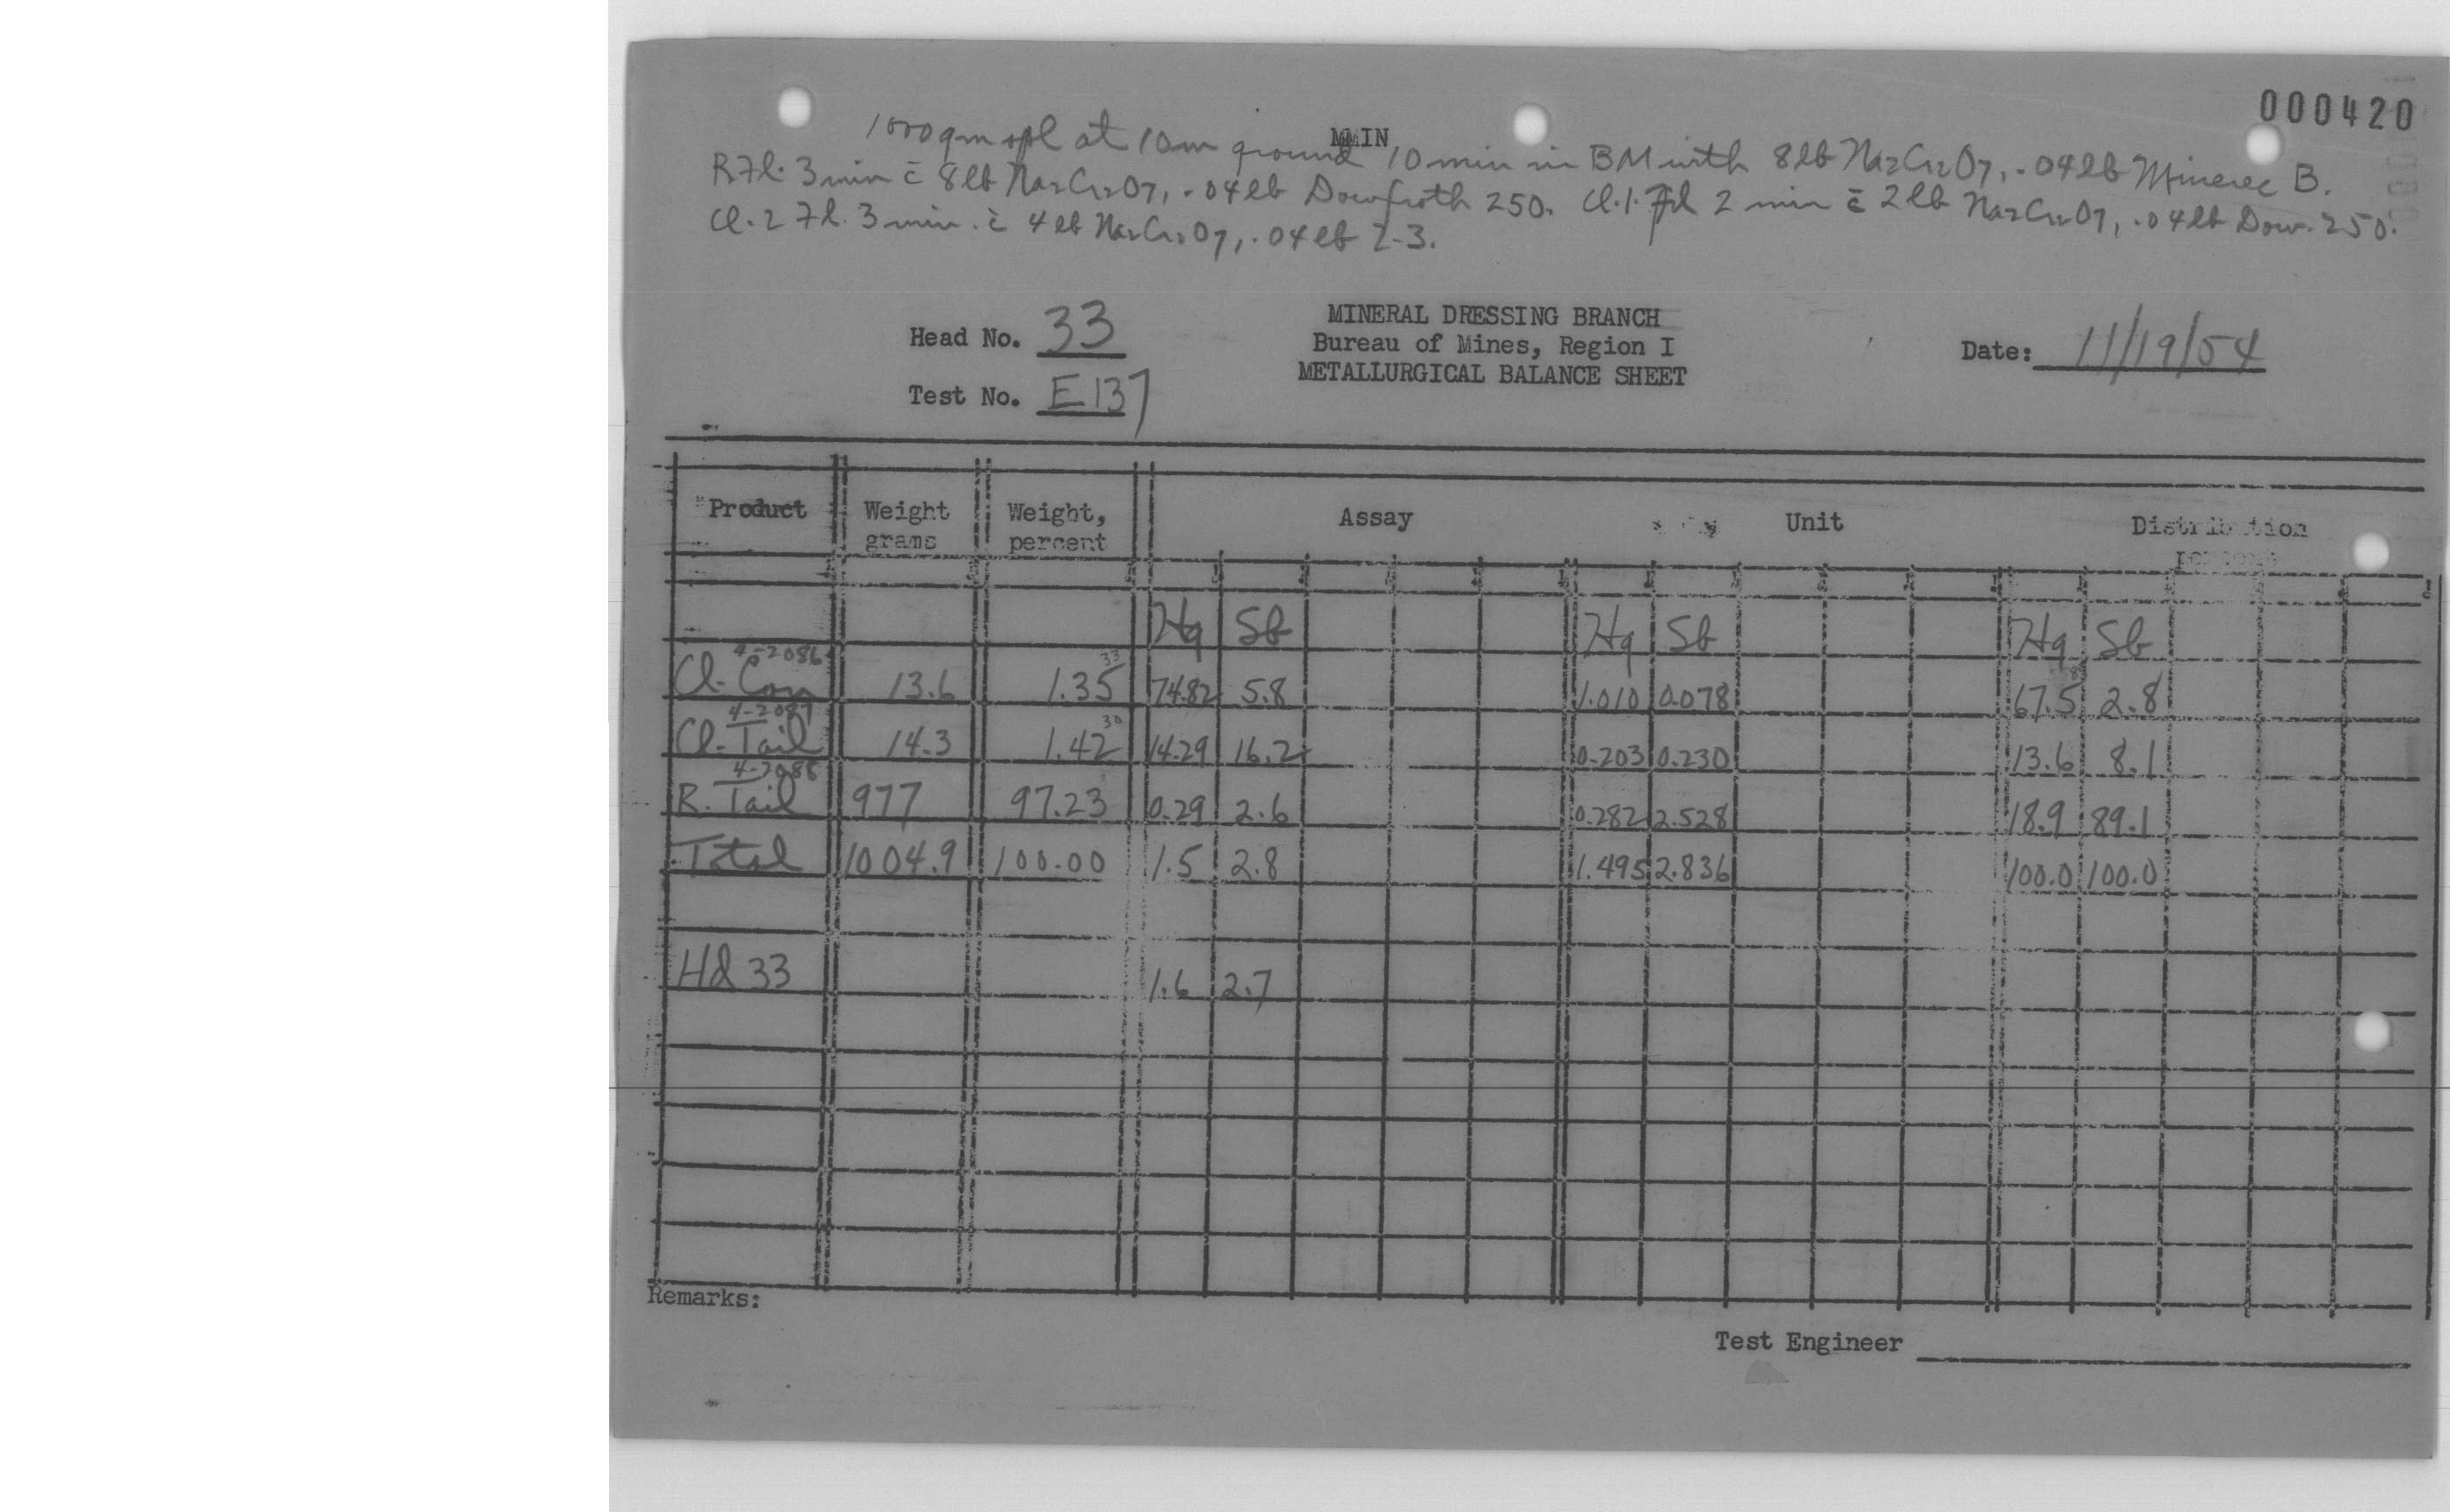 000420
MMIN
1000 gm spl at 10m ground 10 min in BM with 8 lb Na2Cr2O7, .04 lb Minerec B.
R Fl. 3 min c̄ 8 lb Na2Cr2O7, .04 lb Dowfroth 250. Cl. 1. Fl 2 min c̄ 2 lb Na2Cr2O7, .04 lb Dow. 250.
Cl. 2 Fl. 3 min. c̄ 4 lb Na2Cr2O7, .04 lb Z-3.
Head No. 33
Test No. E137
MINERAL DRESSING BRANCH
Bureau of Mines, Region I
METALLURGICAL BALANCE SHEET
Date: 11/19/54
Product Weight grams Weight, percent Assay Unit Distribution
Hg Sb Hg Sb Hg Sb
4-2086 33
Cl. Con 13.6 1.35 74.82 5.8 1.010 0.078 67.5 2.8
4-2087 30
Cl. Tail 14.3 1.42 14.29 16.2 0.203 0.230 13.6 8.1
4-2088
R. Tail 977 97.23 0.29 2.6 0.282 2.528 18.9 89.1
Total 1004.9 100.00 1.5 2.8 1.495 2.836 100.0 100.0
Hd 33 1.6 2.7
Remarks:
Test Engineer